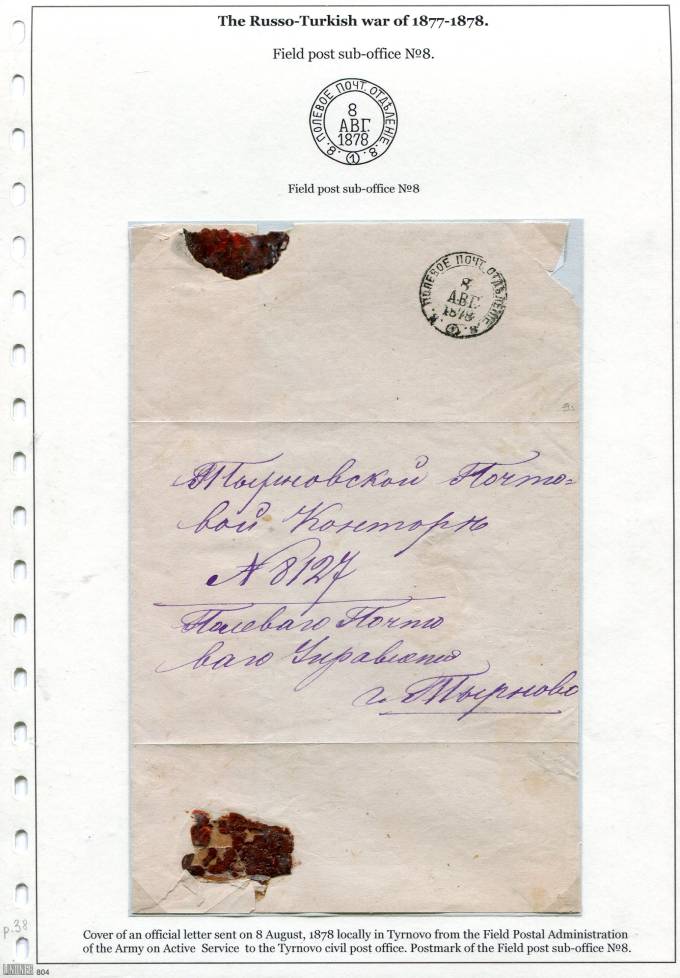 The Russo-Turkish war of 1877-1878.
Field post sub-office №8.
8. ПОЛЕВОЕ ПОЧТ. ОТДѢЛЕНІЕ. 8.
8
АВГ.
1878
(1)
Field post sub-office №8
ПОЛЕВОЕ ПОЧТ. ОТДѢЛЕНІЕ. 8.
8
АВГ.
1878
(1)
Тырновской Почто-
вой Конторѣ
№ 8127
Полеваго Почто
ваго Управленія
г. Тырново
Cover of an official letter sent on 8 August, 1878 locally in Tyrnovo from the Field Postal Administration
of the Army on Active Service to the Tyrnovo civil post office. Postmark of the Field post sub-office №8.
p.38
LINDNER 804